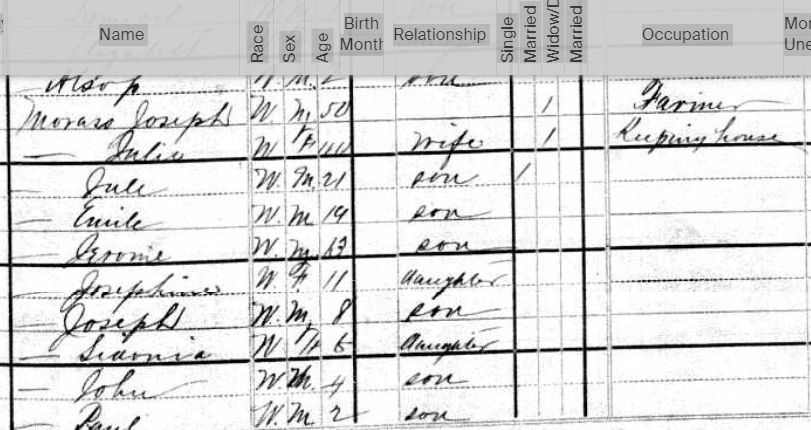 Name Race Sex Age Birth Month Relationship Single Married Widow/D Married Occupation
Alsop W. M. son
Joseph W. M. 50 1 Farmer
— Julie W F wife 1 Keeping house
— Jule W. M. 21 son 1
— Emile W. M 14 son
— Jerome W. M 13 son
— Josephine W F. 11 daughter
— Joseph W. M. 8 son
— Sidonia W F 6 daughter
— John W M. 4 son
— Paul W. M. 2 son